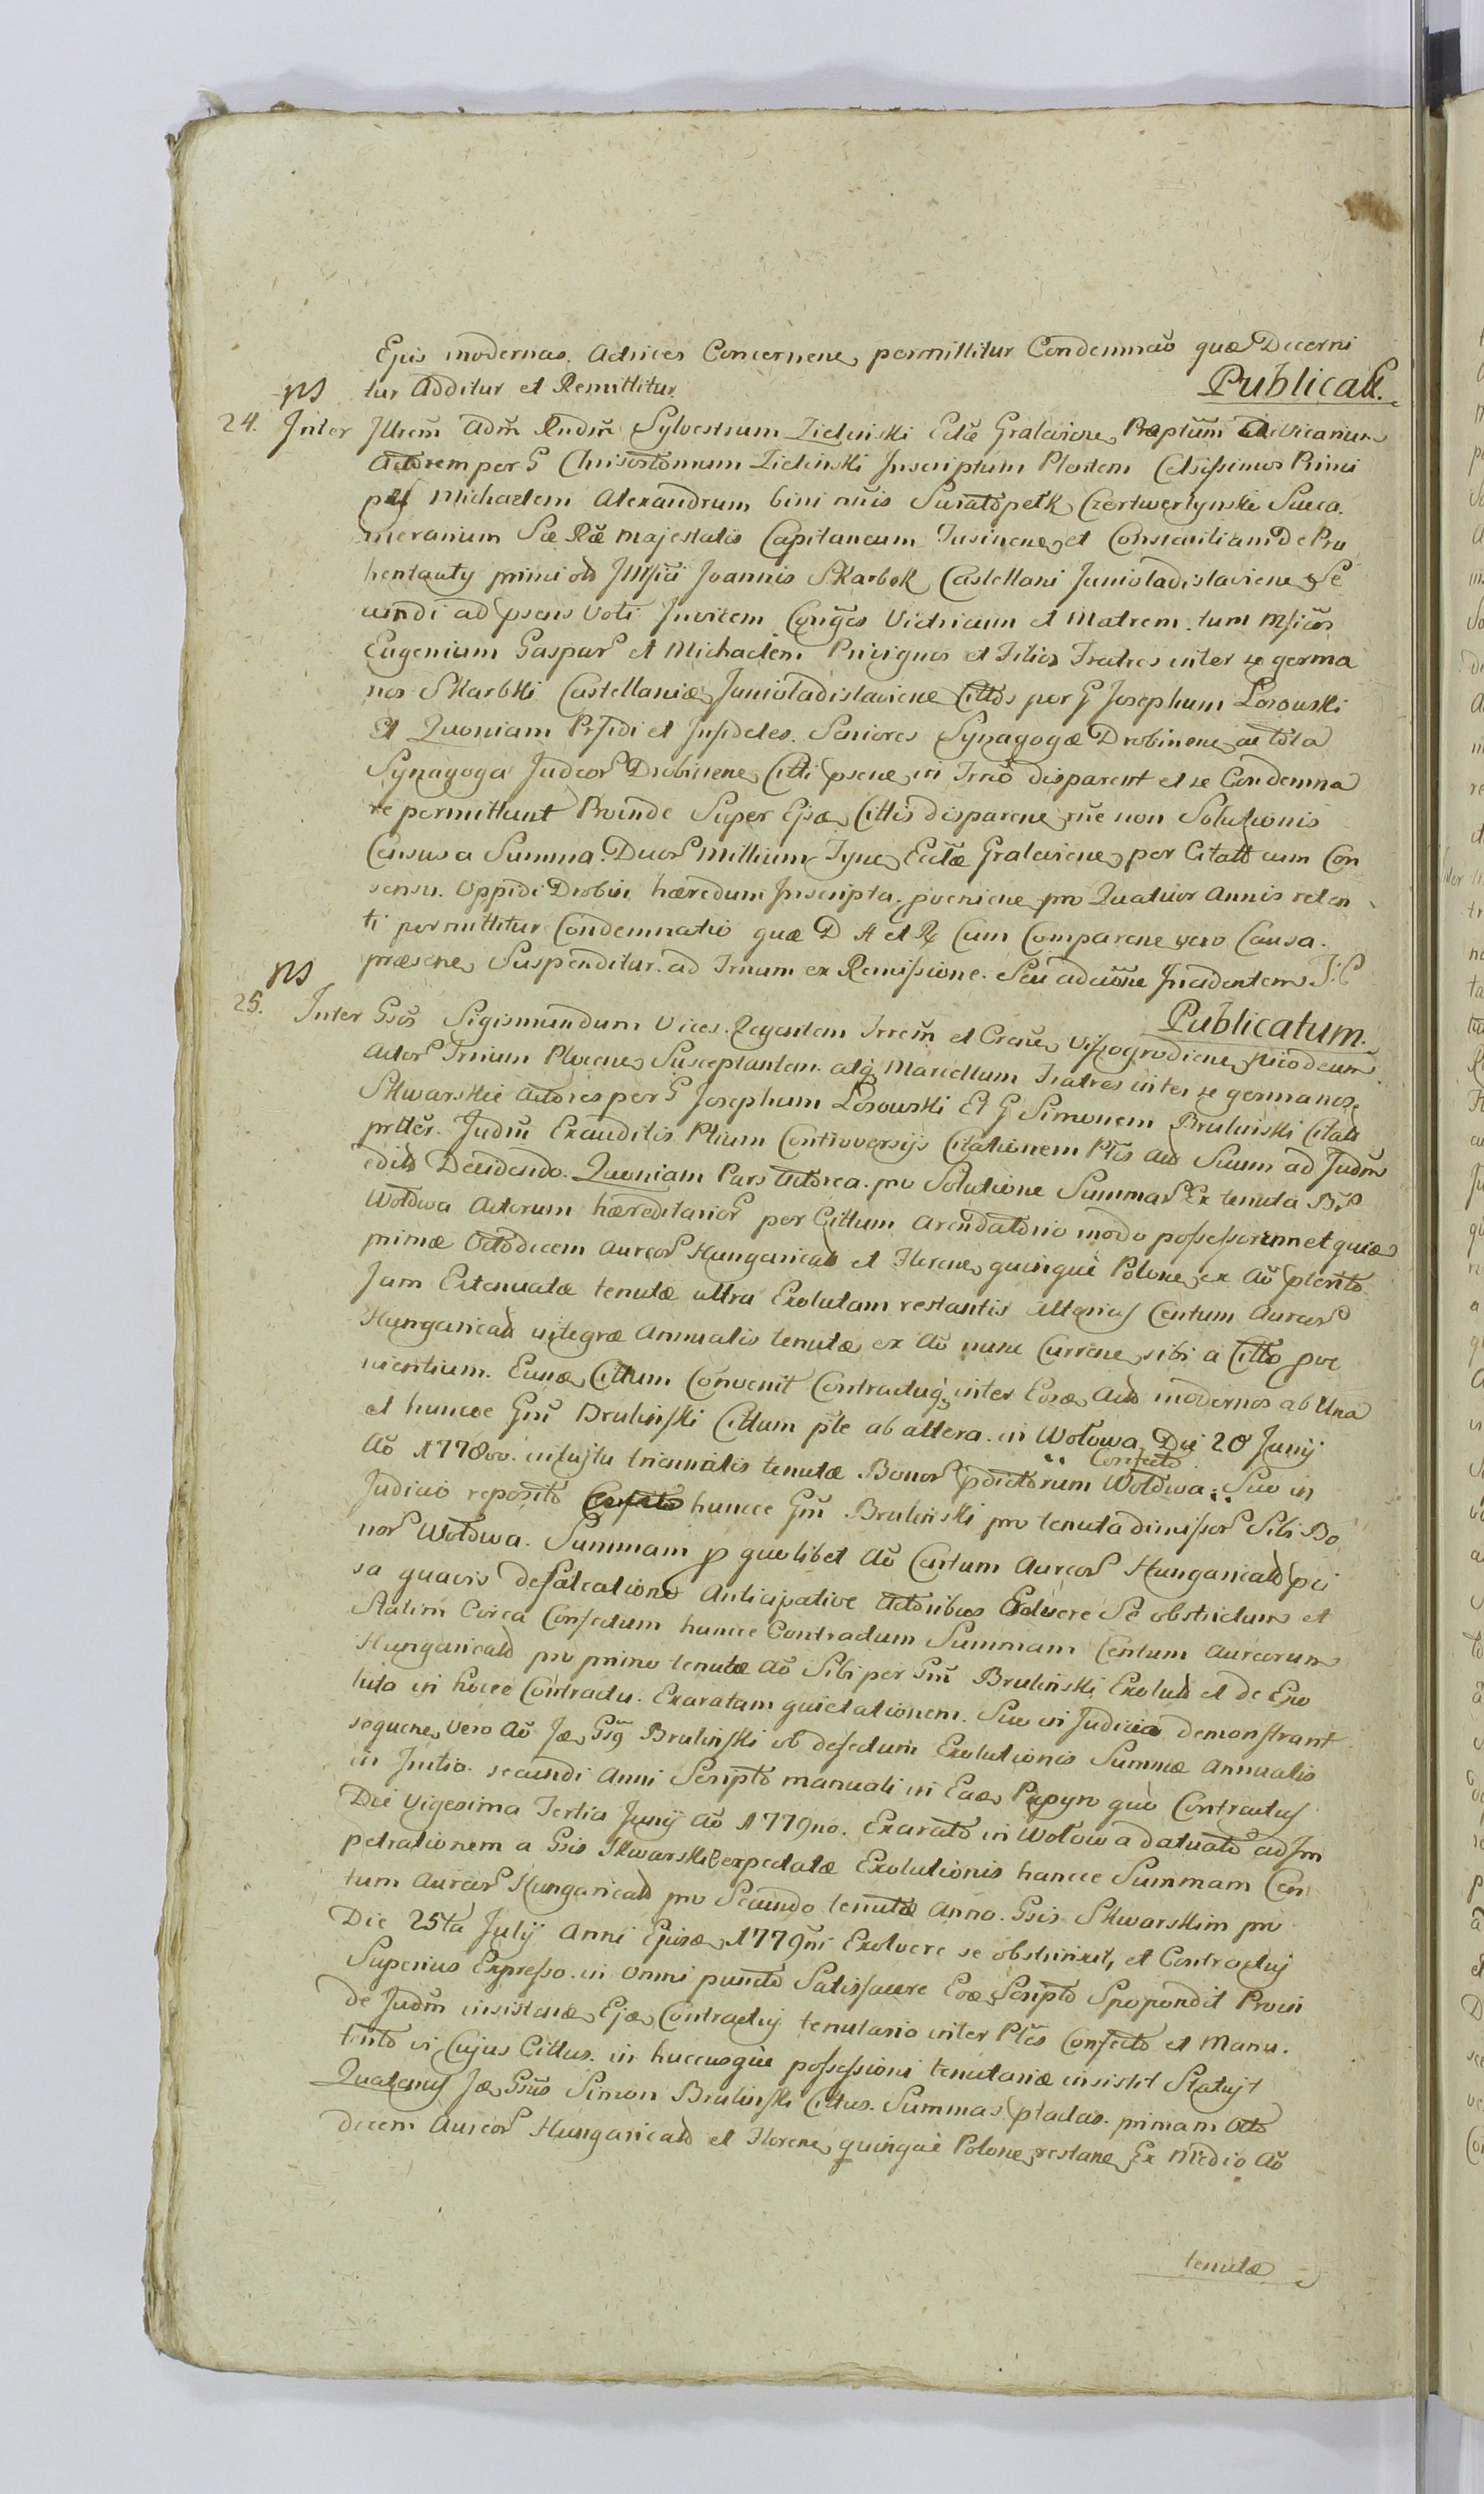 Ejus modernas Actrices Concernens permittitur Condemnaõ quæ Decerni
ps tur Additur et Remittitur Publicatt.
24. Inter Illrem Adm Rndm Sylvestrum Zielinski Eclæ Gralevien Præptum Vicarium
Actorem per G Chrisostomum Zielinski Inscriptum Plentem Celsissimos Princi
pes Michaelem Alexandrum bini nnis Swiatopełk Czertwertynski Succa
merarium Sæ Ræ Majestatis Capitaneum Jusinen et Constantiam De Pru
primi old Joannis Skarbek Castellani Junioladislavien Se
cundi ad psens Voti Invicem Conjges Victricum et Matrem tum
Eugenium Gaspar et Michaelem Privignos et Filios Fratres inter se germa
nos Skarbki Castellanidæ Juniovladislavien Cittos per G Josephum Losowski
Et Quoniam Prfidi et Infideles Seniores Synagogæ Drobinen ac tota
Synagoga Judeor Drobinen Citti psen in Trno disparent et se Condemna
re permittunt Proinde Super Cittis disparen rne non Solutionis
Census a Summa Duor Millium Eclæ Gralevien per Citatt cum Con
sensu Oppidi Drobin hæredum Inscripta pvenien pro Quatuor Annis reten
ti permittitur Condemnatio quæ D A et R Cum Comparen vero Causa
ps præsens Suspenditur ad Trnum ex Remissione Seu Incidentem
Publicatum.
25. Inter Gsos Sigismundum Vices Regentem Trrem et Visogrodien Nicodeum
Actor Trnium Plocen Susceptantem atq Marcellum Fratres inter se germanos
Skwarskie Actores per G Josephum Losowski Et G Simonem Brulinski Citatt
Judm Exauditis Ptium Controversijs Citationem Ptis Act Suum ad Judm
edit Decidendo Quoniam Pars Actorea pro Solutione Summar Ex tenuta
Wołowa Actorum hæreditarior per Cittum Arendatorio modo possessorum et quidem
primæ Octodecem Aureor Hungaricatt et Floren quinque Polone ex Aõ pterito
Jam Extenuatæ tenutæ ultra Exolutam restantis Centum Aureor
Hungaricatt integræ Annualis tenutæ ex Aõ nunc Curren sibi a Citto pve
nientium Cittum Convenit Contractuq inter Act modernos ab Una
et huncce Gm Brulinski Cittum pte ab altera in Wołowa Die 20 Junij
Aõ 1778vo intuitu triennalis tenutæ Bonor pdictorum Wołowa Confecto Suo in
Judicio reposito huncce Gm Brulinski pro tenuta dimissor Sibi Bo
nor Wołowa Summam p quolibet Aõ Centum Aureor Hungaricatt pci
sa quavis defalcatione Anticipative Actoribus Exolvere Se obstrictum et
Statim Circa Confectum huncce Contractum Summam Centum Aureorum
Hungaricatt pro primo tenutæ Aõ Sibi per Gm Brulinski Exolutt et de Exo
luta in hocce Contractu Exaratam quietationem Suo in Judicio demonstrant
sequen vero Aõ Brulinski ob defectum Exolutionis Summæ Annualis
in Initio secundi Anni Scripto manuali in Papyro quo Contractus
Die Vigesima Tertia Junij Aõ 1779no Exarato in Wołowa datuato ad Im
petrationem a Gsis Skwarskie expectatæ Exolutionis hancce Summam Cen
tum Aureor Hungaricatt pro Secundo tenutæ Anno Gsis Skwarskim pro
Die 25ta Julij Anni 1779ni Exolvere se obstrinxit, et Contractuj
Superius Expresso in omni puncto Satisfacere Scripto Spopondit Proin
de Judm Contractuj tenutario inter Ptes Confecto et Manu
tento vi Cujus Cittus in huccusque possessioni tenutariæ insistit Statuit
Quatenus Gsus Simon Brulinski Cittus Summas ptactas primam Octo
decem Aureor Hungaricatt et Floren quinque Polone restan Ex Medio Aõ
tenutæ